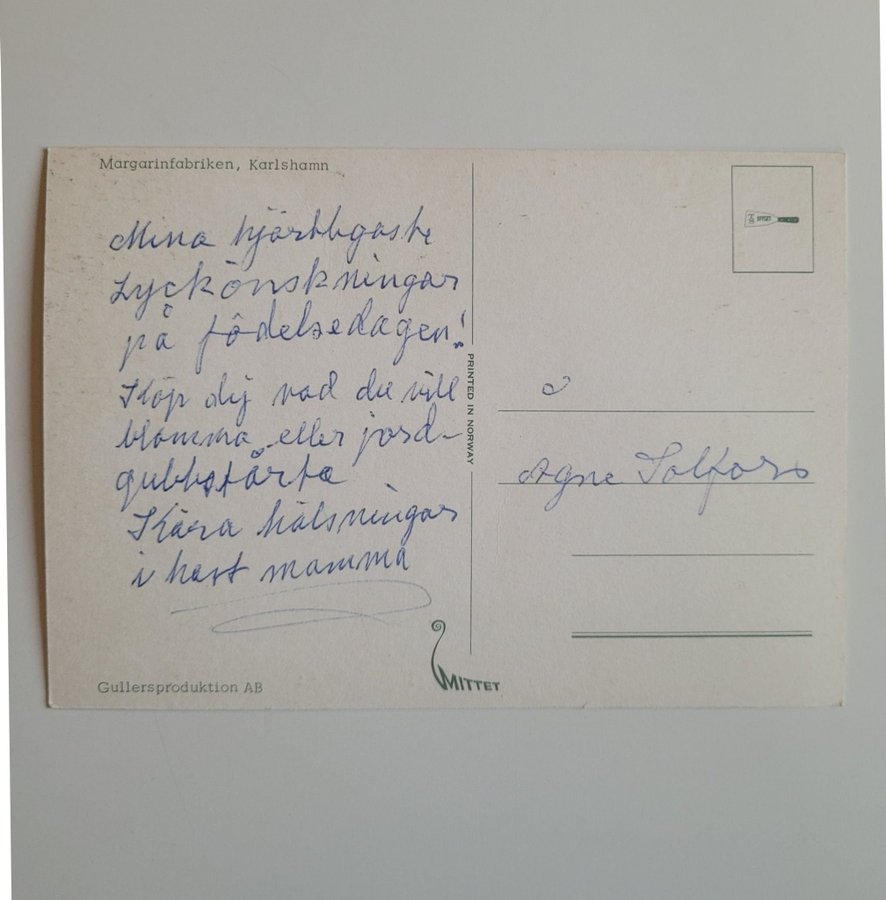 Margarinfabriken, Karlshamn
Mina hjärtligaste
Lyckönskningar
på födelsedagen!
Köp dig vad du vill
blomma eller jord-
gubbstårta
Kära hälsningar
i hast mamma
Gullersproduktion AB
MITTET
PRINTED IN NORWAY
OFFSET
Agne Solfors